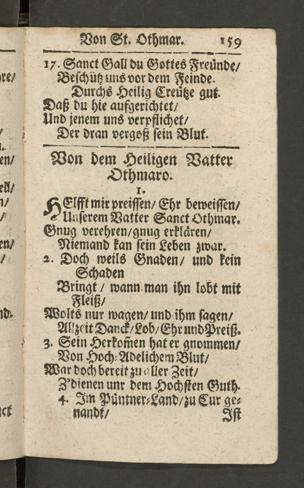 Von St. Othmar. 159
17. Sanct Gall du Gottes Freünde/
Beschütz uns vor dem Feinde.
Durchs Heilig Creütze gut.
Daß du hie aufgerichtet/
Und jenem uns verpflichet/
Der dran vergoß sein Blut.
Von dem Heiligen Vatter
Othmaro.
1.
HElfft mir preissen/ Ehr beweissen/
Unserem Vatter Sanct Othmar.
Gnug verehren/gnug erklären/
Niemand kan sein Leben zwar.
2. Doch weils Gnaden/ und kein
Schaden
Bringt/ wann man ihn lobt mit
Fleiß/
Wolts nur wagen/ und ihm sagen/
Allzeit Danck/Lob/Ehr und Preiß.
3. Sein Herkom̃en hat er gnommen/
Von Hoch-Adelichem Blut/
War doch bereit zu aller Zeit/
Z'dienen unr dem Höchsten Guth.
4. Im Püntner-Land/ zu Cur ge-
nandt/ Ist